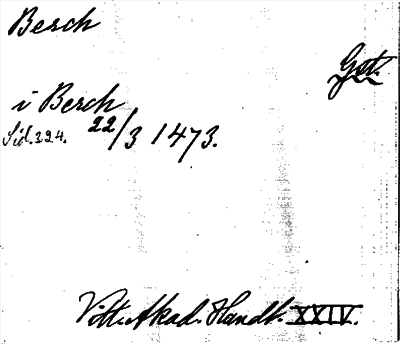 Besch
Got.
i Besch
Sid. 324. 22/3 1473.
Vitt. Akad. Handl. XXIV.